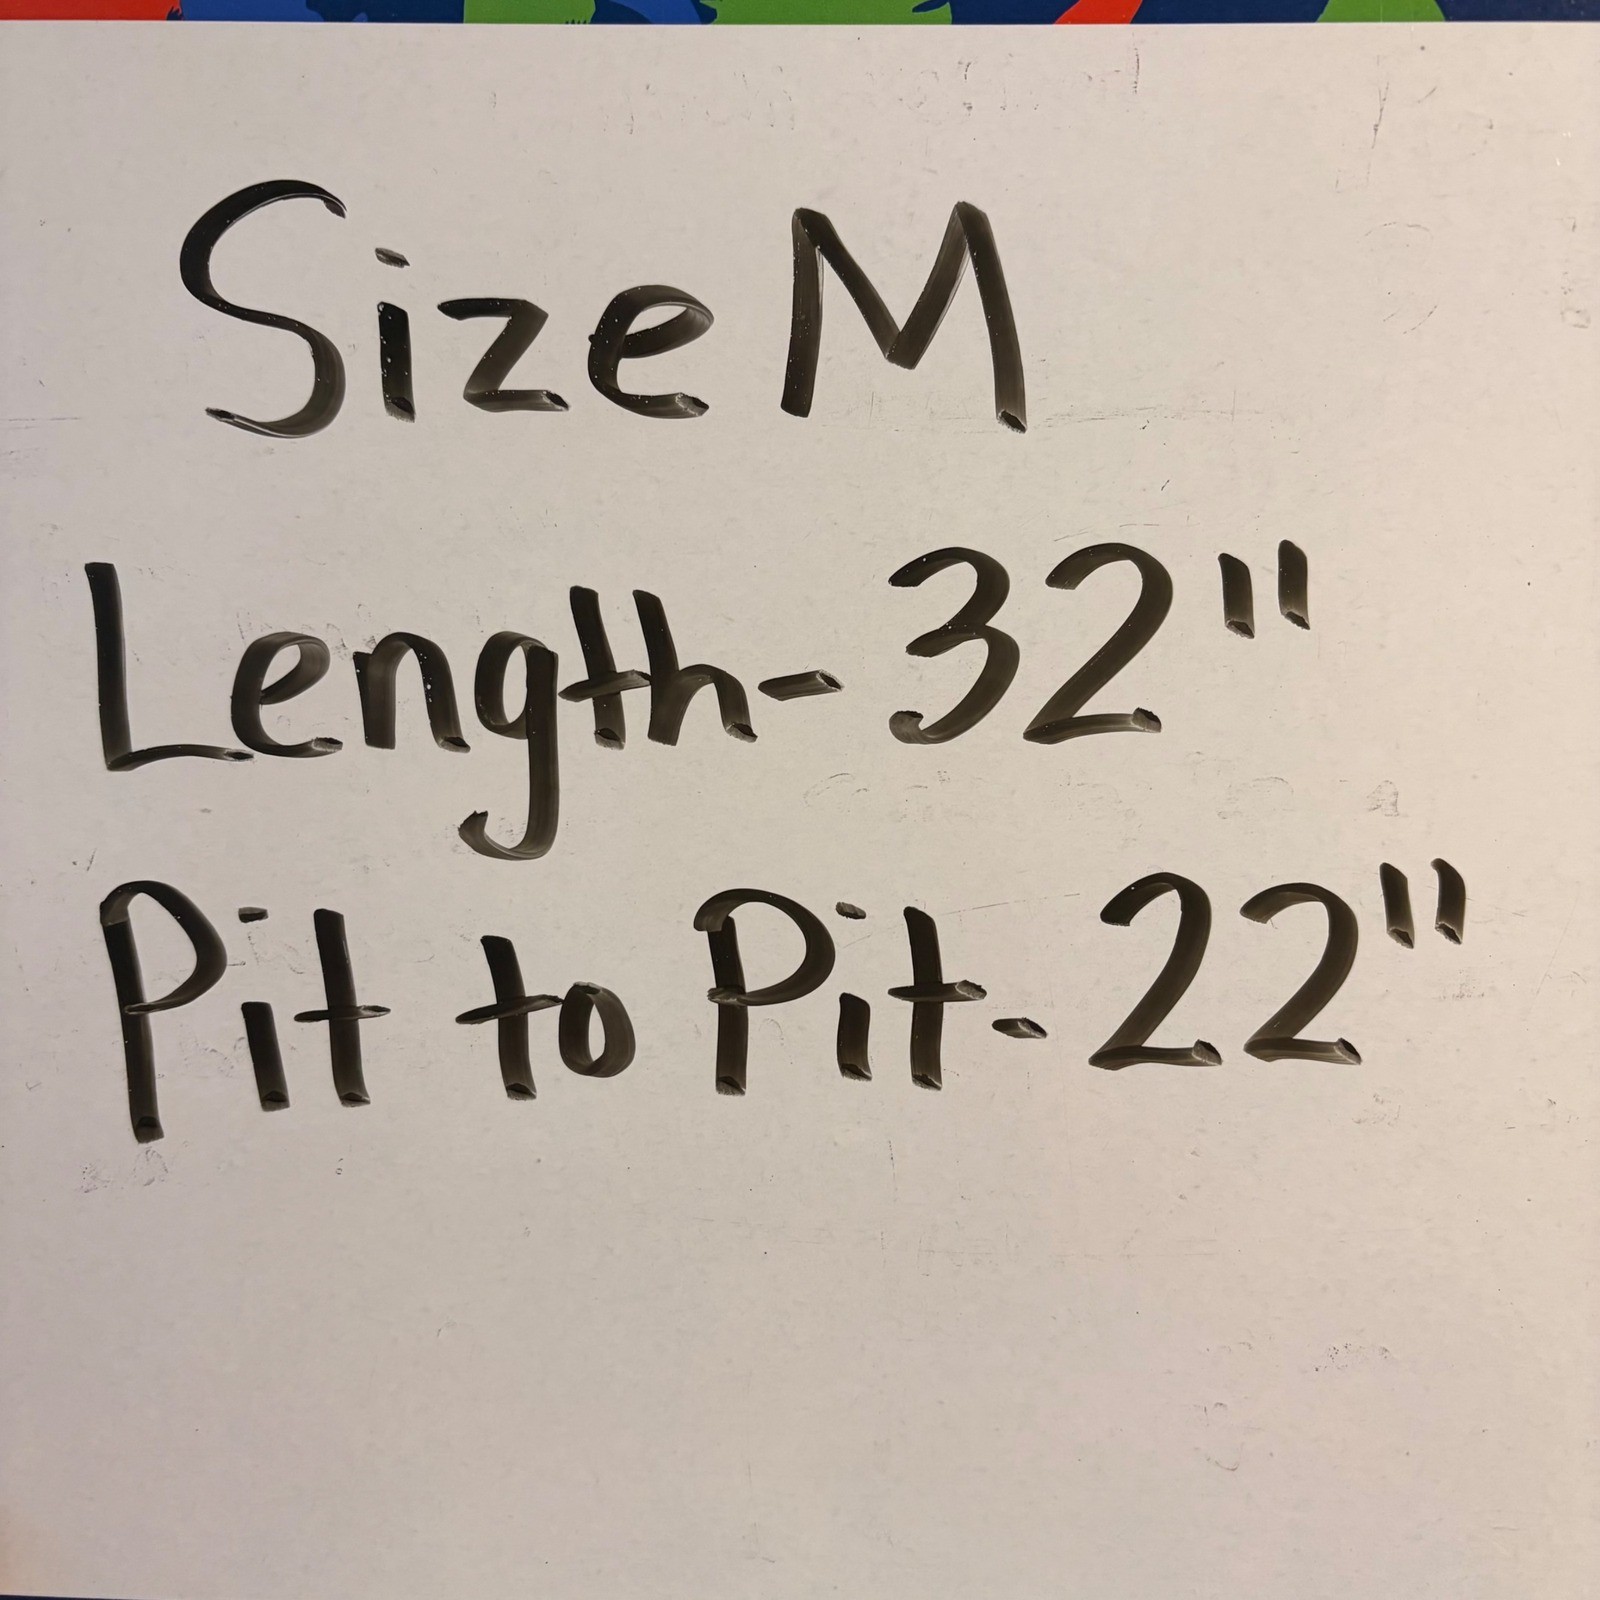 Size M
Length- 32"
Pit to Pit- 22"